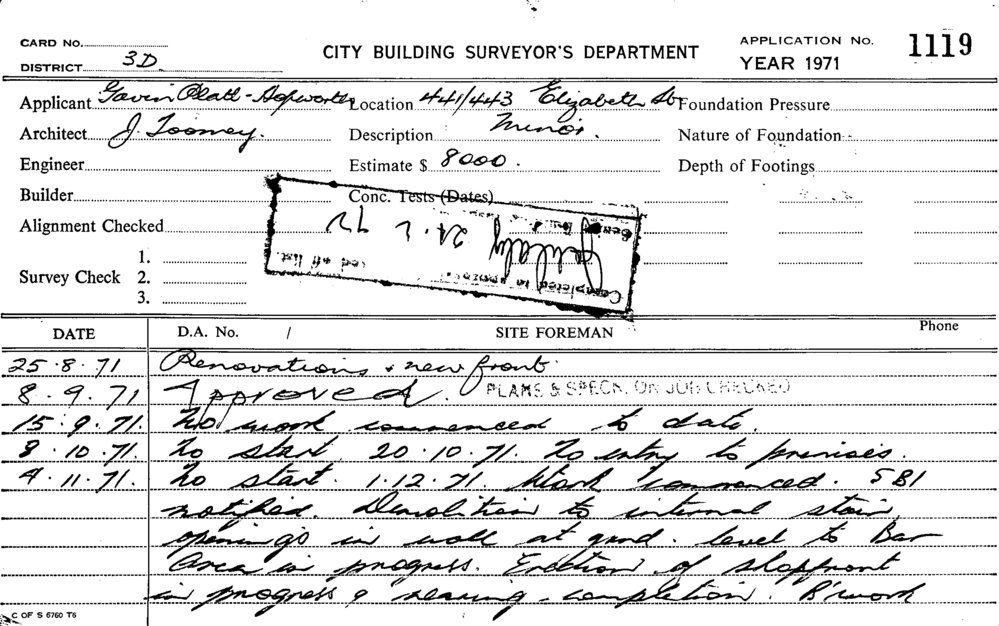 CARD No.
DISTRICT 3D
CITY BUILDING SURVEYOR'S DEPARTMENT
APPLICATION No. 1119
YEAR 1971
Applicant Gavin Platt - Hepworth Location 441/443 Elizabeth St Foundation Pressure
Architect J. Toomey. Description Minor. Nature of Foundation
Engineer Estimate $ 8000. Depth of Footings
Builder Conc. Tests (Dates)
Alignment Checked
Survey Check 1.
2.
3.
Completed in
24. 2. 72
DATE D.A. No. / SITE FOREMAN Phone
25.8.71 Renovations & new front
8.9.71 Approved. PLANS & SPECN. ON JOB CHECKED
15.9.71. No work commenced to date.
8.10.71. No start. 20.10.71. No entry to premises.
4.11.71. No start. 1.12.71. Work commenced. SBI
notified. Demolition to internal stair
openings in wall at grnd. level to Bar
Area in progress. Erection of shopfront
in progress & nearing completion. B'work
C OF S 6760 T6